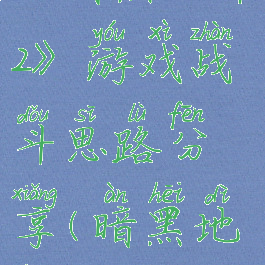 yóu xì zhàn
2》游戏战
dòu sī lù fēn
斗思路分
xiǎng àn hēi dì
享(暗黑地